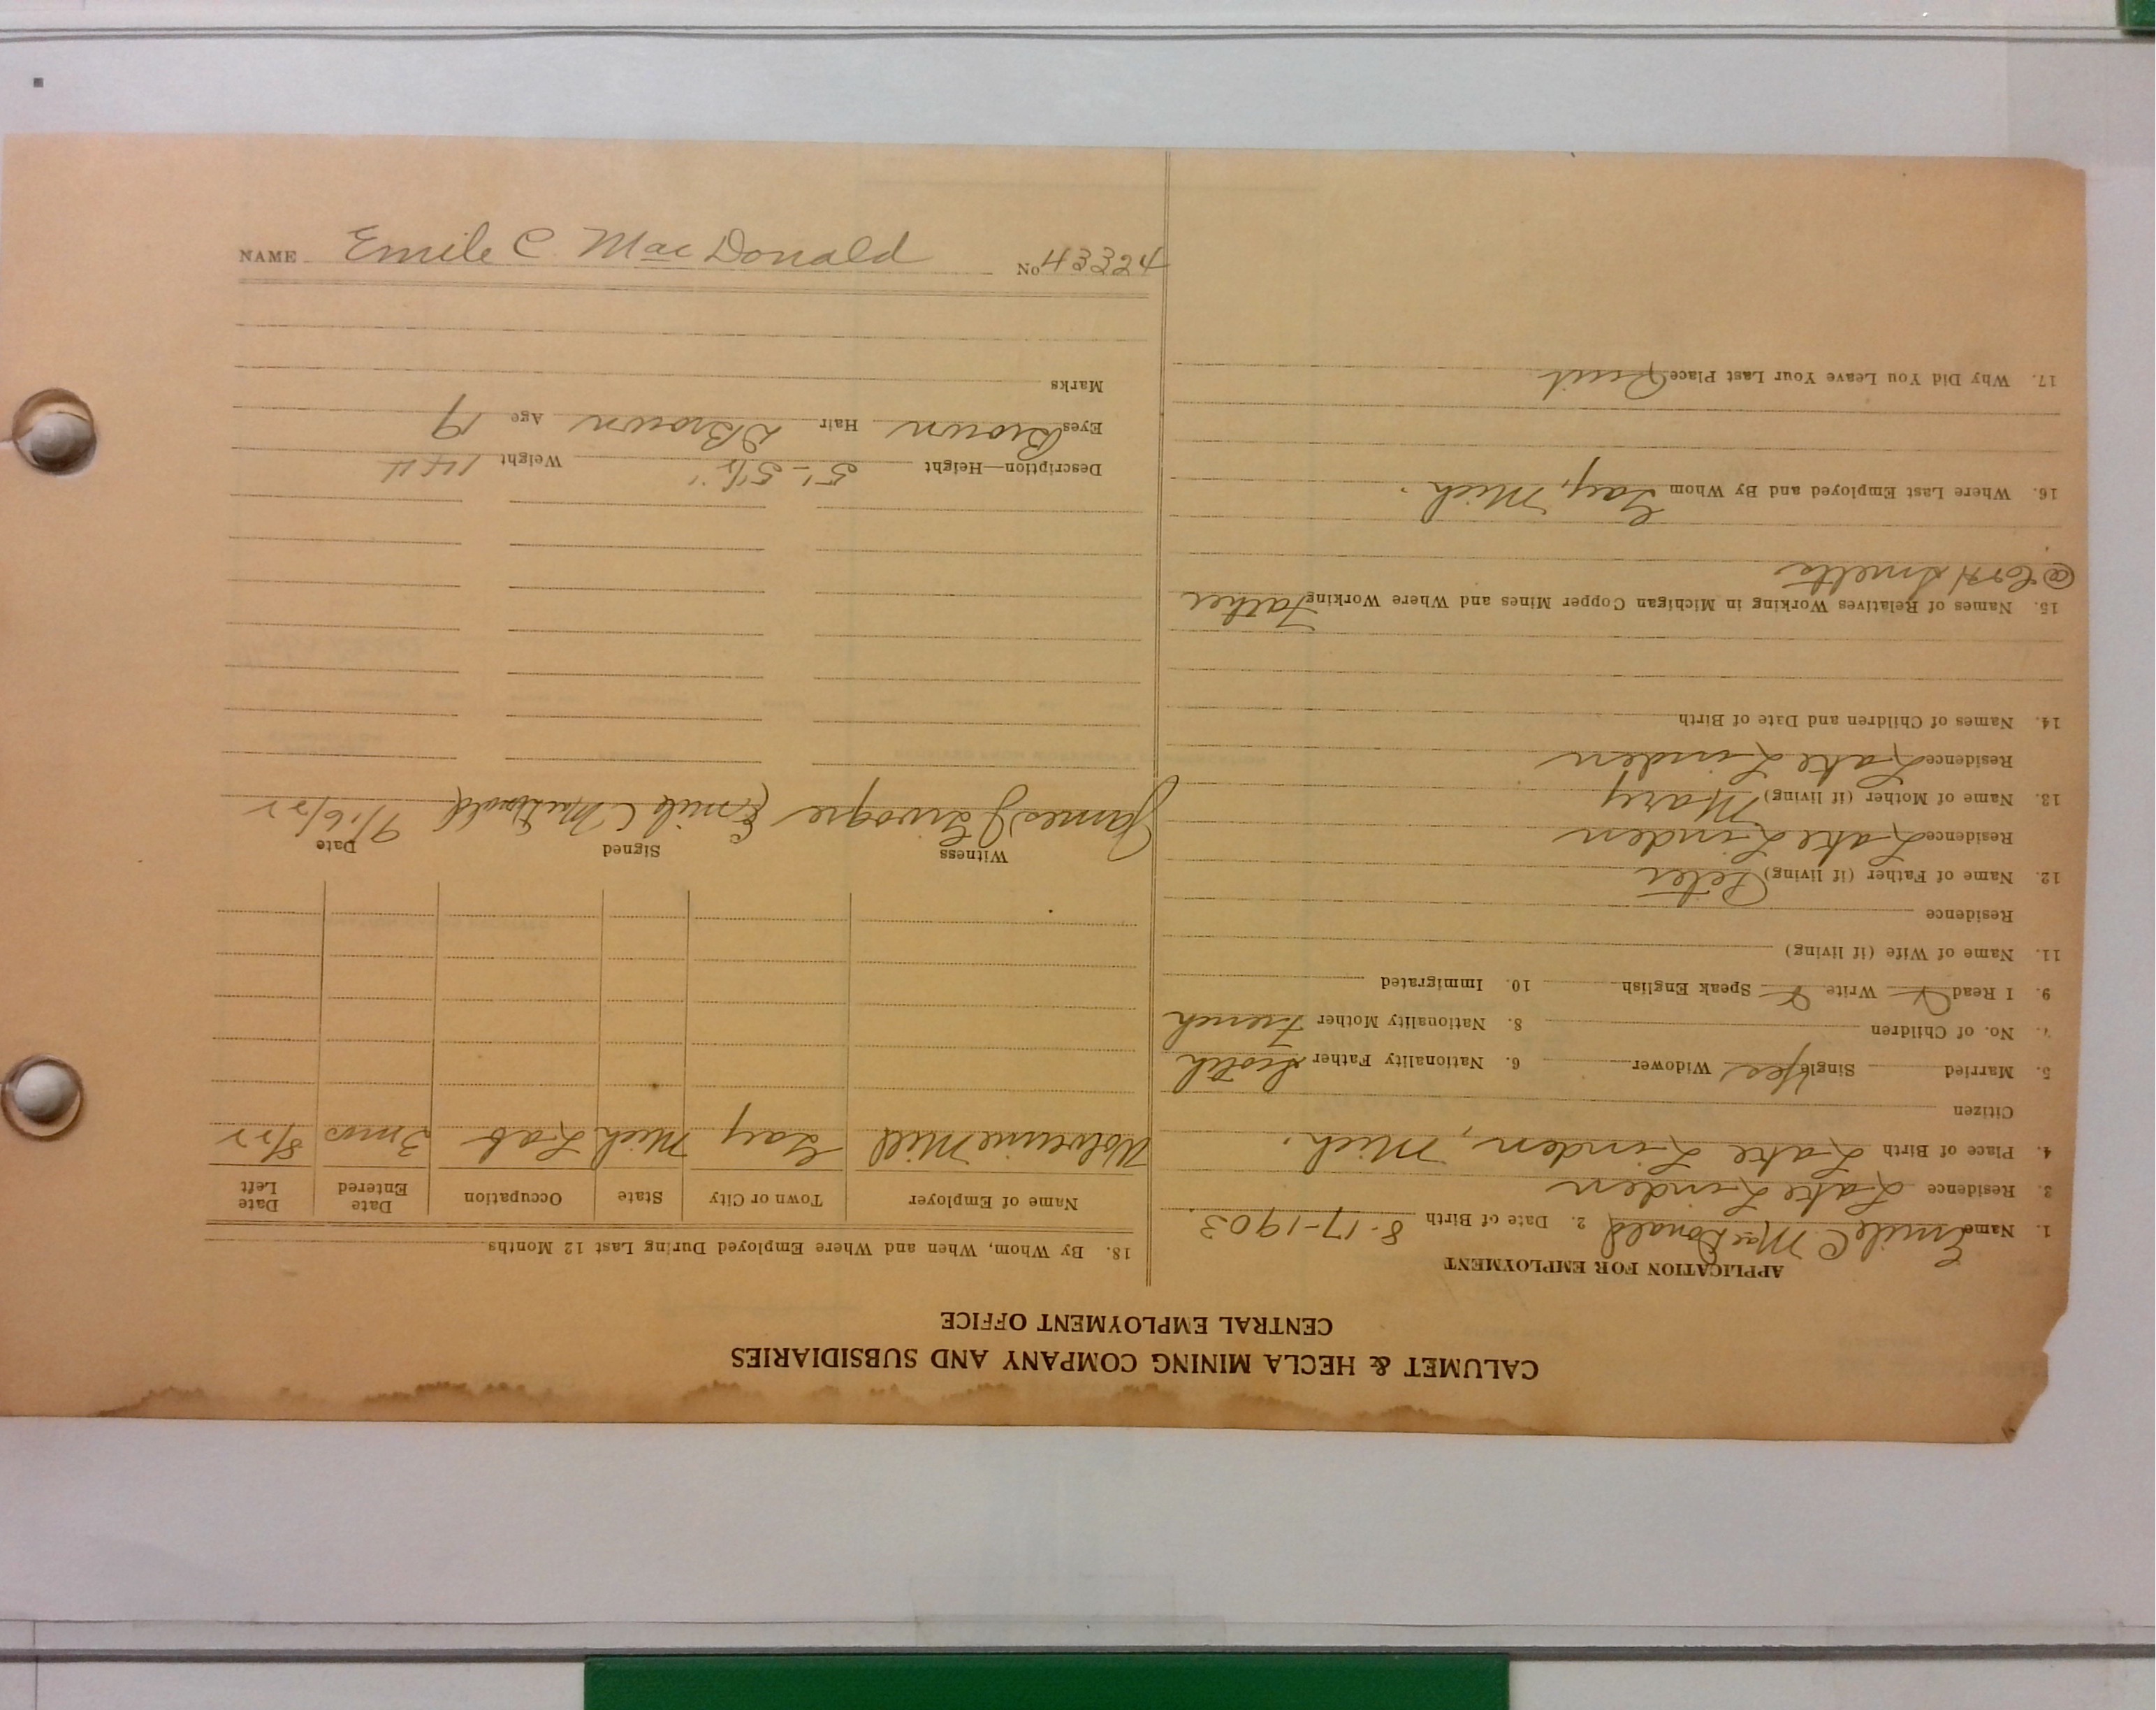 CALUMET & HECLA MINING COMPANY AND SUBSIDIARIES
CENTRAL EMPLOYMENT OFFICE
APPLICATION FOR EMPLOYMENT
1. Name Emile C. MacDonald 2. Date of Birth 8-17-1903
3. Residence Lake Linden
4. Place of Birth Lake Linden, Mich.
Citizen
5. Married Single Yes Widower 6. Nationality Father Scotch
7. No. of Children 8. Nationality Mother French
9. I Read Write Speak English 10. Immigrated
11. Name of Wife (if living)
Residence
12. Name of Father (if living) Peter
Residence Lake Linden
13. Name of Mother (if living) Mary
Residence Lake Linden
14. Names of Children and Date of Birth
15. Names of Relatives Working in Michigan Copper Mines and Where Working Father
@ C & H Smelter
16. Where Last Employed and By Whom Gay, Mich.
17. Why Did You Leave Your Last Place Quit
18. By Whom, When and Where Employed During Last 12 Months
Name of Employer Town or City State Occupation Date Entered Date Left
Wolverine Mill Gay Mich Lab 3 mos 8/22
Witness Signed Date
James J Emile C MacDonald 9/16/22
Description—Height 5'-5½" Weight 144
Eyes Brown Hair DBrown Age 19
Marks
NAME Emile C. MacDonald No 43324